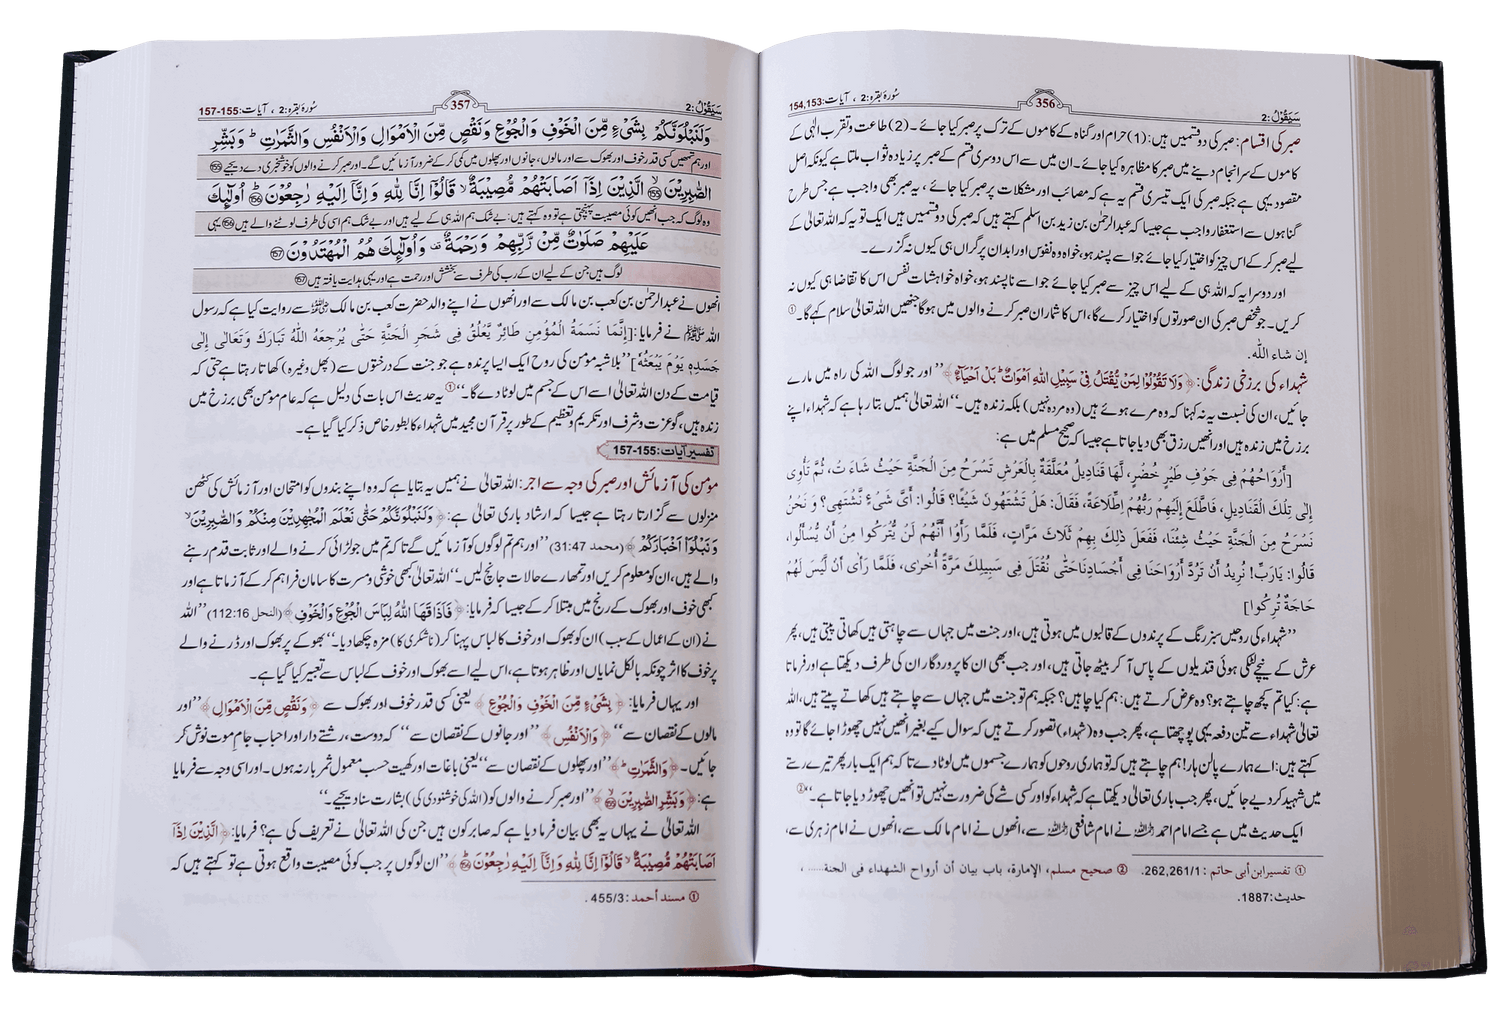 سَيَقُوْلُ:2
356
سُورہ بقرہ:2 ، آیات:154,153
صبر کی اقسام: صبر کی دو قسمیں ہیں: (1) حرام اور گناہ کے کاموں کے ترک پر صبر کیا جائے۔ (2) طاعت و تقرب الٰہی کے
کاموں کے سرانجام دینے میں صبر کا مظاہرہ کیا جائے۔ ان میں سے اس دوسری قسم کے صبر پر زیادہ ثواب ملتا ہے کیونکہ اصل
مقصود یہی ہے جبکہ صبر کی ایک تیسری قسم یہ ہے کہ مصائب اور مشکلات پر صبر کیا جائے ، یہ صبر بھی واجب ہے جس طرح
گناہوں سے استغفار واجب ہے جیسا کہ عبدالرحمٰن بن زید بن اسلم کہتے ہیں کہ صبر کی دو قسمیں ہیں ایک تو یہ کہ اللہ تعالیٰ کے
لیے صبر کر کے اس چیز کو اختیار کیا جائے جو اسے پسند ہو، خواہ وہ نفوس اور ابدان پر گراں ہی کیوں نہ گزرے۔
اور دوسرا یہ کہ اللہ ہی کے لیے اس چیز سے صبر کیا جائے جو اسے ناپسند ہو، خواہ خواہشات نفس اس کا تقاضا ہی کیوں نہ
کریں۔ جو شخص صبر کی ان صورتوں کو اختیار کرے گا، اس کا شمار ان صبر کرنے والوں میں ہو گا جنھیں اللہ تعالیٰ سلام کہے گا۔①
إن شاء اللّٰه.
شہداء کی برزخی زندگی: ﴿وَلَا تَقُوْلُوْا لِمَنْ يُّقْتَلُ فِيْ سَبِيْلِ اللّٰهِ اَمْوَاتٌ ؕ بَلْ اَحْيَآءٌ﴾ ”اور جو لوگ اللہ کی راہ میں مارے
جائیں، ان کی نسبت یہ نہ کہنا کہ وہ مرے ہوئے ہیں (وہ مردہ نہیں) بلکہ زندہ ہیں۔“ اللہ تعالیٰ ہمیں بتا رہا ہے کہ شہداء اپنے
برزخ میں زندہ ہیں اور انھیں رزق بھی دیا جاتا ہے جیسا کہ صحیح مسلم میں ہے:
[أَرْوَاحُهُمْ فِي جَوْفِ طَيْرٍ خُضْرٍ، لَّهَا قَنَادِيلُ مُعَلَّقَةٌ بِالْعَرْشِ تَسْرَحُ مِنَ الْجَنَّةِ حَيْثُ شَاءَتْ، ثُمَّ تَأْوِي
إِلٰى تِلْكَ الْقَنَادِيلِ، فَاطَّلَعَ إِلَيْهِمْ رَبُّهُمُ اطِّلَاعَةً، فَقَالَ: هَلْ تَشْتَهُونَ شَيْئًا؟ قَالُوا: أَيَّ شَيْءٍ نَّشْتَهِي؟ وَ نَحْنُ
نَسْرَحُ مِنَ الْجَنَّةِ حَيْثُ شِئْنَا، فَفَعَلَ ذٰلِكَ بِهِمْ ثَلَاثَ مَرَّاتٍ، فَلَمَّا رَأَوْا أَنَّهُمْ لَنْ يُّتْرَكُوا مِنْ أَنْ يُّسْأَلُوا،
قَالُوا: يَارَبِّ! نُرِيدُ أَنْ تَرُدَّ أَرْوَاحَنَا فِي أَجْسَادِنَا حَتّٰى نُقْتَلَ فِي سَبِيلِكَ مَرَّةً أُخْرٰى، فَلَمَّا رَأٰى أَنْ لَّيْسَ لَهُمْ
حَاجَةٌ تُرِكُوا]
”شہداء کی روحیں سبز رنگ کے پرندوں کے قالبوں میں ہوتی ہیں، اور جنت میں جہاں سے چاہتی ہیں کھاتی پیتی ہیں، پھر
عرش کے نیچے لٹکی ہوئی قندیلوں کے پاس آ کر بیٹھ جاتی ہیں، اور جب بھی ان کا پروردگار ان کی طرف دیکھتا ہے اور فرماتا
ہے: کیا تم کچھ چاہتے ہو؟ وہ عرض کرتے ہیں: ہم کیا چاہیں؟ جبکہ ہم تو جنت میں جہاں سے چاہتے ہیں کھاتے پیتے ہیں، اللہ
تعالیٰ شہداء سے تین دفعہ یہی پوچھتا ہے، پھر جب وہ (شہداء) تصور کرتے ہیں کہ سوال کیے بغیر انھیں نہیں چھوڑا جائے گا تو وہ
کہتے ہیں: اے ہمارے پالن ہار! ہم چاہتے ہیں کہ تو ہماری روحوں کو ہمارے جسموں میں لوٹا دے تاکہ ہم ایک بار پھر تیرے رستے
میں شہید کر دیے جائیں، پھر جب باری تعالیٰ دیکھتا ہے کہ شہداء کو اور کسی شے کی ضرورت نہیں تو انھیں چھوڑ دیا جاتا ہے۔“②
ایک حدیث میں ہے جسے امام احمد رحمہ اللہ نے امام شافعی رحمہ اللہ سے، انھوں نے امام مالک سے، انھوں نے امام زہری سے،
① تفسیر ابن أبي حاتم : 262,261/1. ② صحیح مسلم، الإمارة، باب بیان أن أرواح الشهداء في الجنة...... ،
حدیث:1887.
سَيَقُوْلُ:2
357
سُورہ بقرہ:2 ، آیات:155-157
وَلَنَبْلُوَنَّكُمْ بِشَيْءٍ مِّنَ الْخَوْفِ وَالْجُوْعِ وَنَقْصٍ مِّنَ الْاَمْوَالِ وَالْاَنْفُسِ وَالثَّمَرٰتِ ؕ وَبَشِّرِ
اور ہم تمھیں کسی قدر خوف اور بھوک سے اور مالوں، جانوں اور پھلوں میں کمی کر کے ضرور آزمائیں گے۔ اور صبر کرنے والوں کو خوشخبری دے دیجیے ⑮⑤
الصّٰبِرِيْنَ ۙ155 الَّذِيْنَ اِذَآ اَصَابَتْهُمْ مُّصِيْبَةٌ ۙ قَالُوْٓا اِنَّا لِلّٰهِ وَ اِنَّآ اِلَيْهِ رٰجِعُوْنَ ؕ156 اُولٰٓئِكَ
وہ لوگ کہ جب انھیں کوئی مصیبت پہنچتی ہے تو وہ کہتے ہیں: بے شک ہم اللہ ہی کے لیے ہیں اور بے شک ہم اسی کی طرف لوٹنے والے ہیں 156 یہی
عَلَيْهِمْ صَلَوٰتٌ مِّنْ رَّبِّهِمْ وَرَحْمَةٌ ۫ وَاُولٰٓئِكَ هُمُ الْمُهْتَدُوْنَ 157
لوگ ہیں جن کے لیے ان کے رب کی طرف سے بخشش اور رحمت ہے اور یہی ہدایت یافتہ ہیں 157
انھوں نے عبدالرحمٰن بن کعب بن مالک سے اور انھوں نے اپنے والد حضرت کعب بن مالک رضی اللہ عنہ سے روایت کیا ہے کہ رسول
اللہ ﷺ نے فرمایا: [إِنَّمَا نَسَمَةُ الْمُؤْمِنِ طَائِرٌ يَّعْلُقُ فِي شَجَرِ الْجَنَّةِ حَتّٰى يُرْجِعَهُ اللّٰهُ تَبَارَكَ وَتَعَالٰى إِلٰى
جَسَدِهِ يَوْمَ يَبْعَثُهُ] ”بلاشبہ مومن کی روح ایک ایسا پرندہ ہے جو جنت کے درختوں سے (پھل وغیرہ) کھاتا رہتا ہے حتی کہ
قیامت کے دن اللہ تعالیٰ اسے اس کے جسم میں لوٹا دے گا۔“① یہ حدیث اس بات کی دلیل ہے کہ عام مومن بھی برزخ میں
زندہ ہیں، گو عزت و شرف اور تکریم و تعظیم کے طور پر قرآن مجید میں شہداء کا بطور خاص ذکر کیا گیا ہے۔
تفسیر آیات:155-157
مومن کی آزمائش اور صبر کی وجہ سے اجر: اللہ تعالیٰ نے ہمیں یہ بتایا ہے کہ وہ اپنے بندوں کو امتحان اور آزمائش کی کٹھن
منزلوں سے گزارتا رہتا ہے جیسا کہ ارشاد باری تعالیٰ ہے: ﴿وَلَنَبْلُوَنَّكُمْ حَتّٰى نَعْلَمَ الْمُجٰهِدِيْنَ مِنْكُمْ وَالصّٰبِرِيْنَ ۙ
وَنَبْلُوَا۟ اَخْبَارَكُمْ﴾ (محمد 31:47) ”اور ہم تم لوگوں کو آزمائیں گے تاکہ تم میں جو لڑائی کرنے والے اور ثابت قدم رہنے
والے ہیں، ان کو معلوم کریں اور تمھارے حالات جانچ لیں۔“ اللہ تعالیٰ کبھی خوشی و مسرت کا سامان فراہم کر کے آزماتا ہے اور
کبھی خوف اور بھوک کے رنج میں مبتلا کر کے جیسا کہ فرمایا: ﴿فَاَذَاقَهَا اللّٰهُ لِبَاسَ الْجُوْعِ وَالْخَوْفِ﴾ (النحل 112:16) ”اللہ
نے (ان کے اعمال کے سبب) ان کو بھوک اور خوف کا لباس پہنا کر (ناشکری کا) مزہ چکھا دیا۔“ بھوکے پر بھوک اور ڈرنے والے
پر خوف کا اثر چونکہ بالکل نمایاں اور ظاہر ہوتا ہے، اس لیے اسے بھوک اور خوف کے لباس سے تعبیر کیا گیا ہے۔
اور یہاں فرمایا: ﴿بِشَيْءٍ مِّنَ الْخَوْفِ وَالْجُوْعِ﴾ یعنی کسی قدر خوف اور بھوک سے ﴿وَنَقْصٍ مِّنَ الْاَمْوَالِ﴾ ”اور
مالوں کے نقصان سے“ ﴿وَالْاَنْفُسِ﴾ ”اور جانوں کے نقصان سے“ کہ دوست، رشتے دار اور احباب جامِ موت نوش کر
جائیں۔ ﴿وَالثَّمَرٰتِ ؕ﴾ ”اور پھلوں کے نقصان سے“ یعنی باغات اور کھیت حسب معمول ثمر بار نہ ہوں۔ اور اسی وجہ سے فرمایا
ہے: ﴿وَبَشِّرِ الصّٰبِرِيْنَ ۙ155﴾ ”اور صبر کرنے والوں کو (اللہ کی خوشنودی کی) بشارت سنا دیجیے۔“
اللہ تعالیٰ نے یہاں یہ بھی بیان فرما دیا ہے کہ صابر کون ہیں جن کی اللہ تعالیٰ نے تعریف کی ہے؟ فرمایا: ﴿الَّذِيْنَ اِذَآ
اَصَابَتْهُمْ مُّصِيْبَةٌ ۙ قَالُوْٓا اِنَّا لِلّٰهِ وَاِنَّآ اِلَيْهِ رٰجِعُوْنَ ؕ156﴾ ”ان لوگوں پر جب کوئی مصیبت واقع ہوتی ہے تو کہتے ہیں کہ
① مسند أحمد : 455/3 .